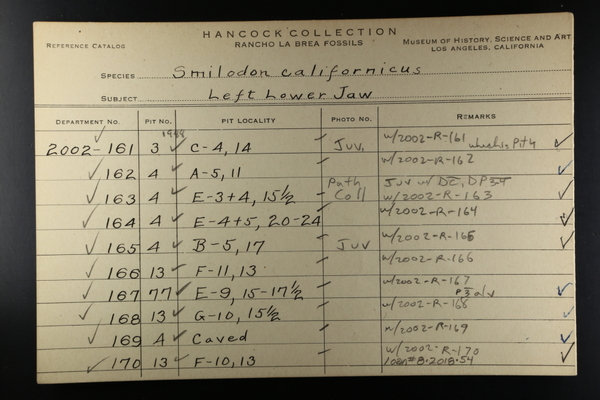 HANCOCK COLLECTION
REFERENCE CATALOG RANCHO LA BREA FOSSILS MUSEUM OF HISTORY, SCIENCE AND ART
LOS ANGELES, CALIFORNIA
SPECIES Smilodon californicus
SUBJECT Left Lower Jaw
DEPARTMENT NO. PIT NO. PIT LOCALITY PHOTO NO. REMARKS
2002-161 3 C-4, 14 Juv. w/2002-R-161 which is Pit 4
162 4 A-5, 11 w/2002-R-162
163 4 E-3+4, 15½ Path Coll Juv w/ DC, DP3-4 w/2002-R-163
164 4 E-4+5, 20-24 w/2002-R-164
165 4 B-5, 17 Juv w/2002-R-165
166 13 F-11, 13 w/2002-R-166
167 77 E-9, 15-17½ w/2002-R-167
168 13 G-10, 15½ w/2002-R-168
169 4 Caved w/2002-R-169
170 13 F-10, 13 w/2002-R-170
loan#8-2018-54